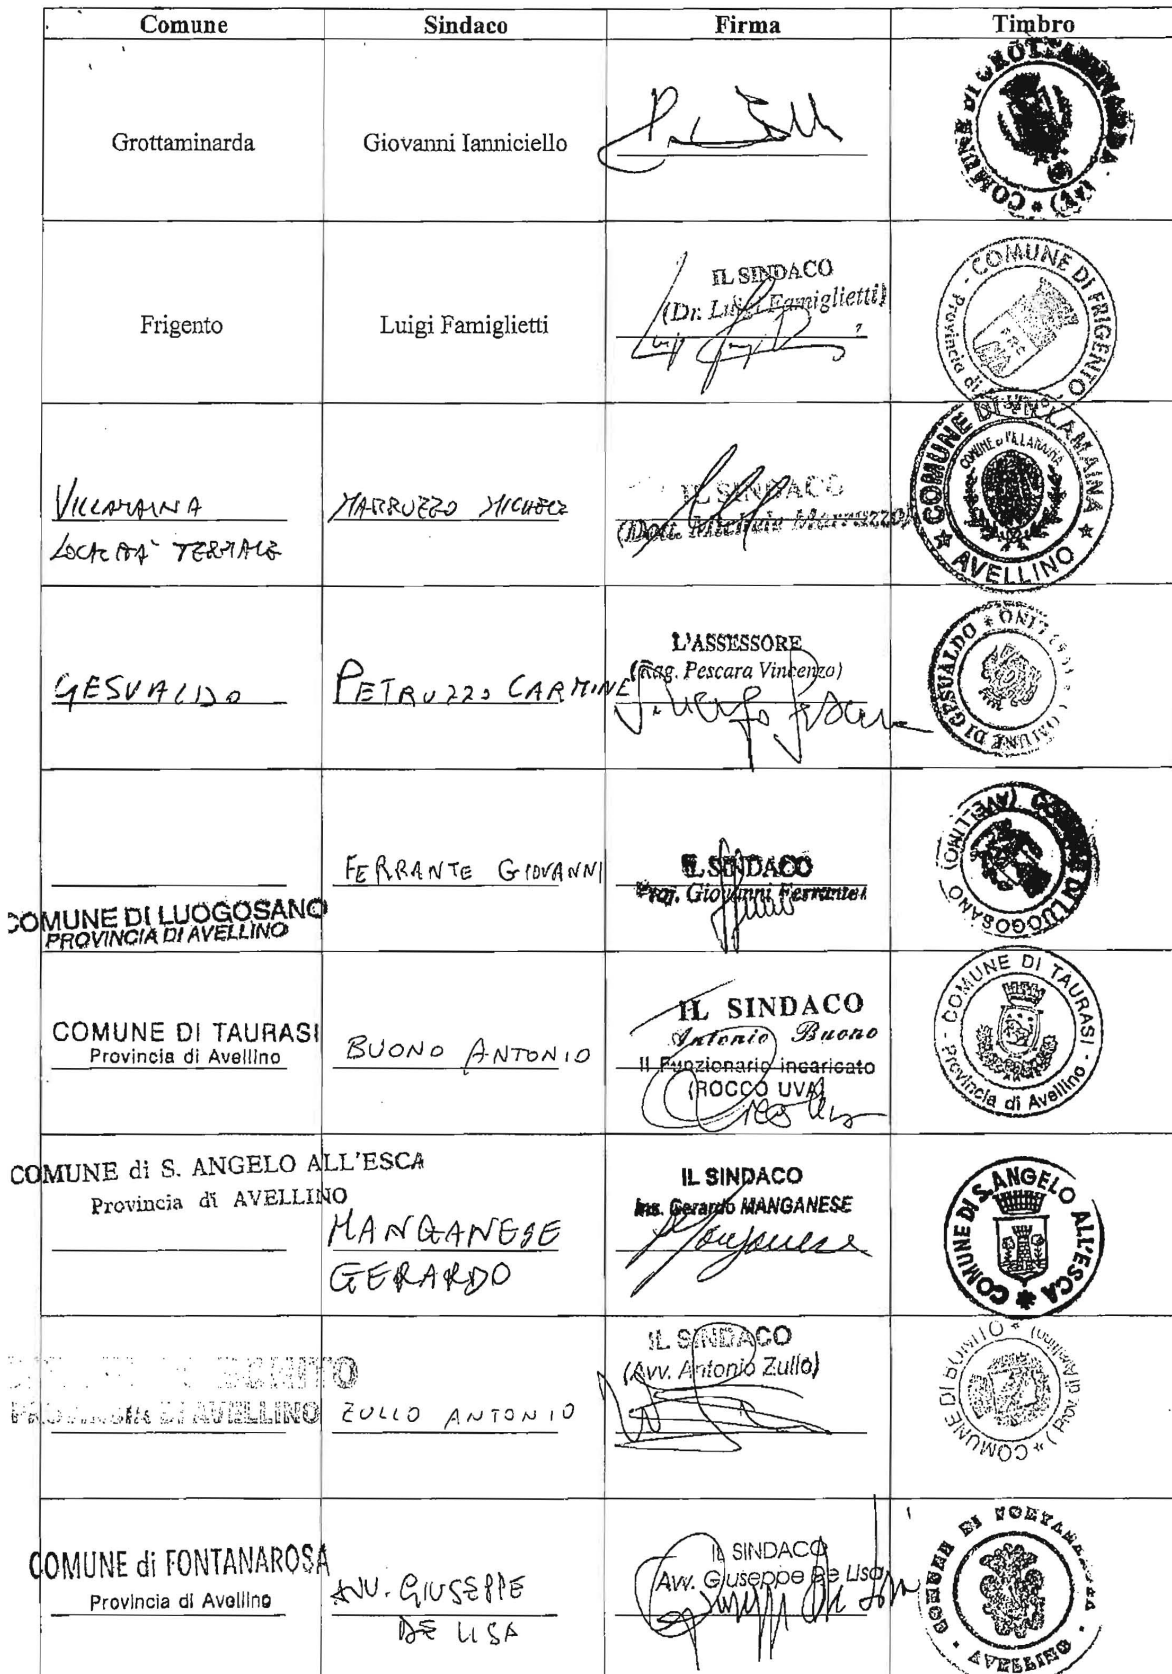 Comune Sindaco Firma Timbro
Grottaminarda Giovanni Ianniciello
COMUNE DI GROTTAMINARDA * (AV) *
Frigento Luigi Famiglietti
IL SINDACO
(Dr. Luigi Famiglietti)
COMUNE DI FRIGENTO - Provincia di
VILLAMAINA MARRUZZO MICHELE
LOCALITA' TERMALE
IL SINDACO
(Dott. Michele Marruzzo)
COMUNE DI VILLAMAINA * AVELLINO *
COMUNE DI VILLAMAINA
GESUALDO PETRUZZO CARMINE
L'ASSESSORE
(Rag. Pescara Vincenzo)
Vincenzo Pescara
COMUNE DI GESUALDO *
FERRANTE GIOVANNI
COMUNE DI LUOGOSANO
PROVINCIA DI AVELLINO
IL SINDACO
Prof. Giovanni Ferrante
COMUNE DI LUOGOSANO (AVELLINO)
COMUNE DI TAURASI
Provincia di Avellino
BUONO ANTONIO
IL SINDACO
Antonio Buono
Il Funzionario incaricato
(ROCCO UVA)
COMUNE DI TAURASI - Provincia di Avellino -
COMUNE di S. ANGELO ALL'ESCA
Provincia di AVELLINO
MANGANESE
GERARDO
IL SINDACO
Ins. Gerardo MANGANESE
Manganese
COMUNE DI S. ANGELO ALL'ESCA *
BONITO
PROVINCIA DI AVELLINO
ZULLO ANTONIO
IL SINDACO
(Avv. Antonio Zullo)
COMUNE DI BONITO * (Prov. di Avellino) *
COMUNE di FONTANAROSA
Provincia di Avellino
AVV. GIUSEPPE
DE LISA
IL SINDACO
Avv. Giuseppe De Lisa
COMUNE DI FONTANAROSA · AVELLINO ·